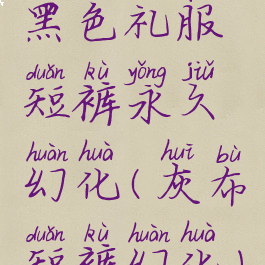 黑色礼服
duǎn kù yǒng jiǔ
短裤永久
huàn huà huī bù
幻化(灰布
duǎn kù huàn huà
短裤幻化)